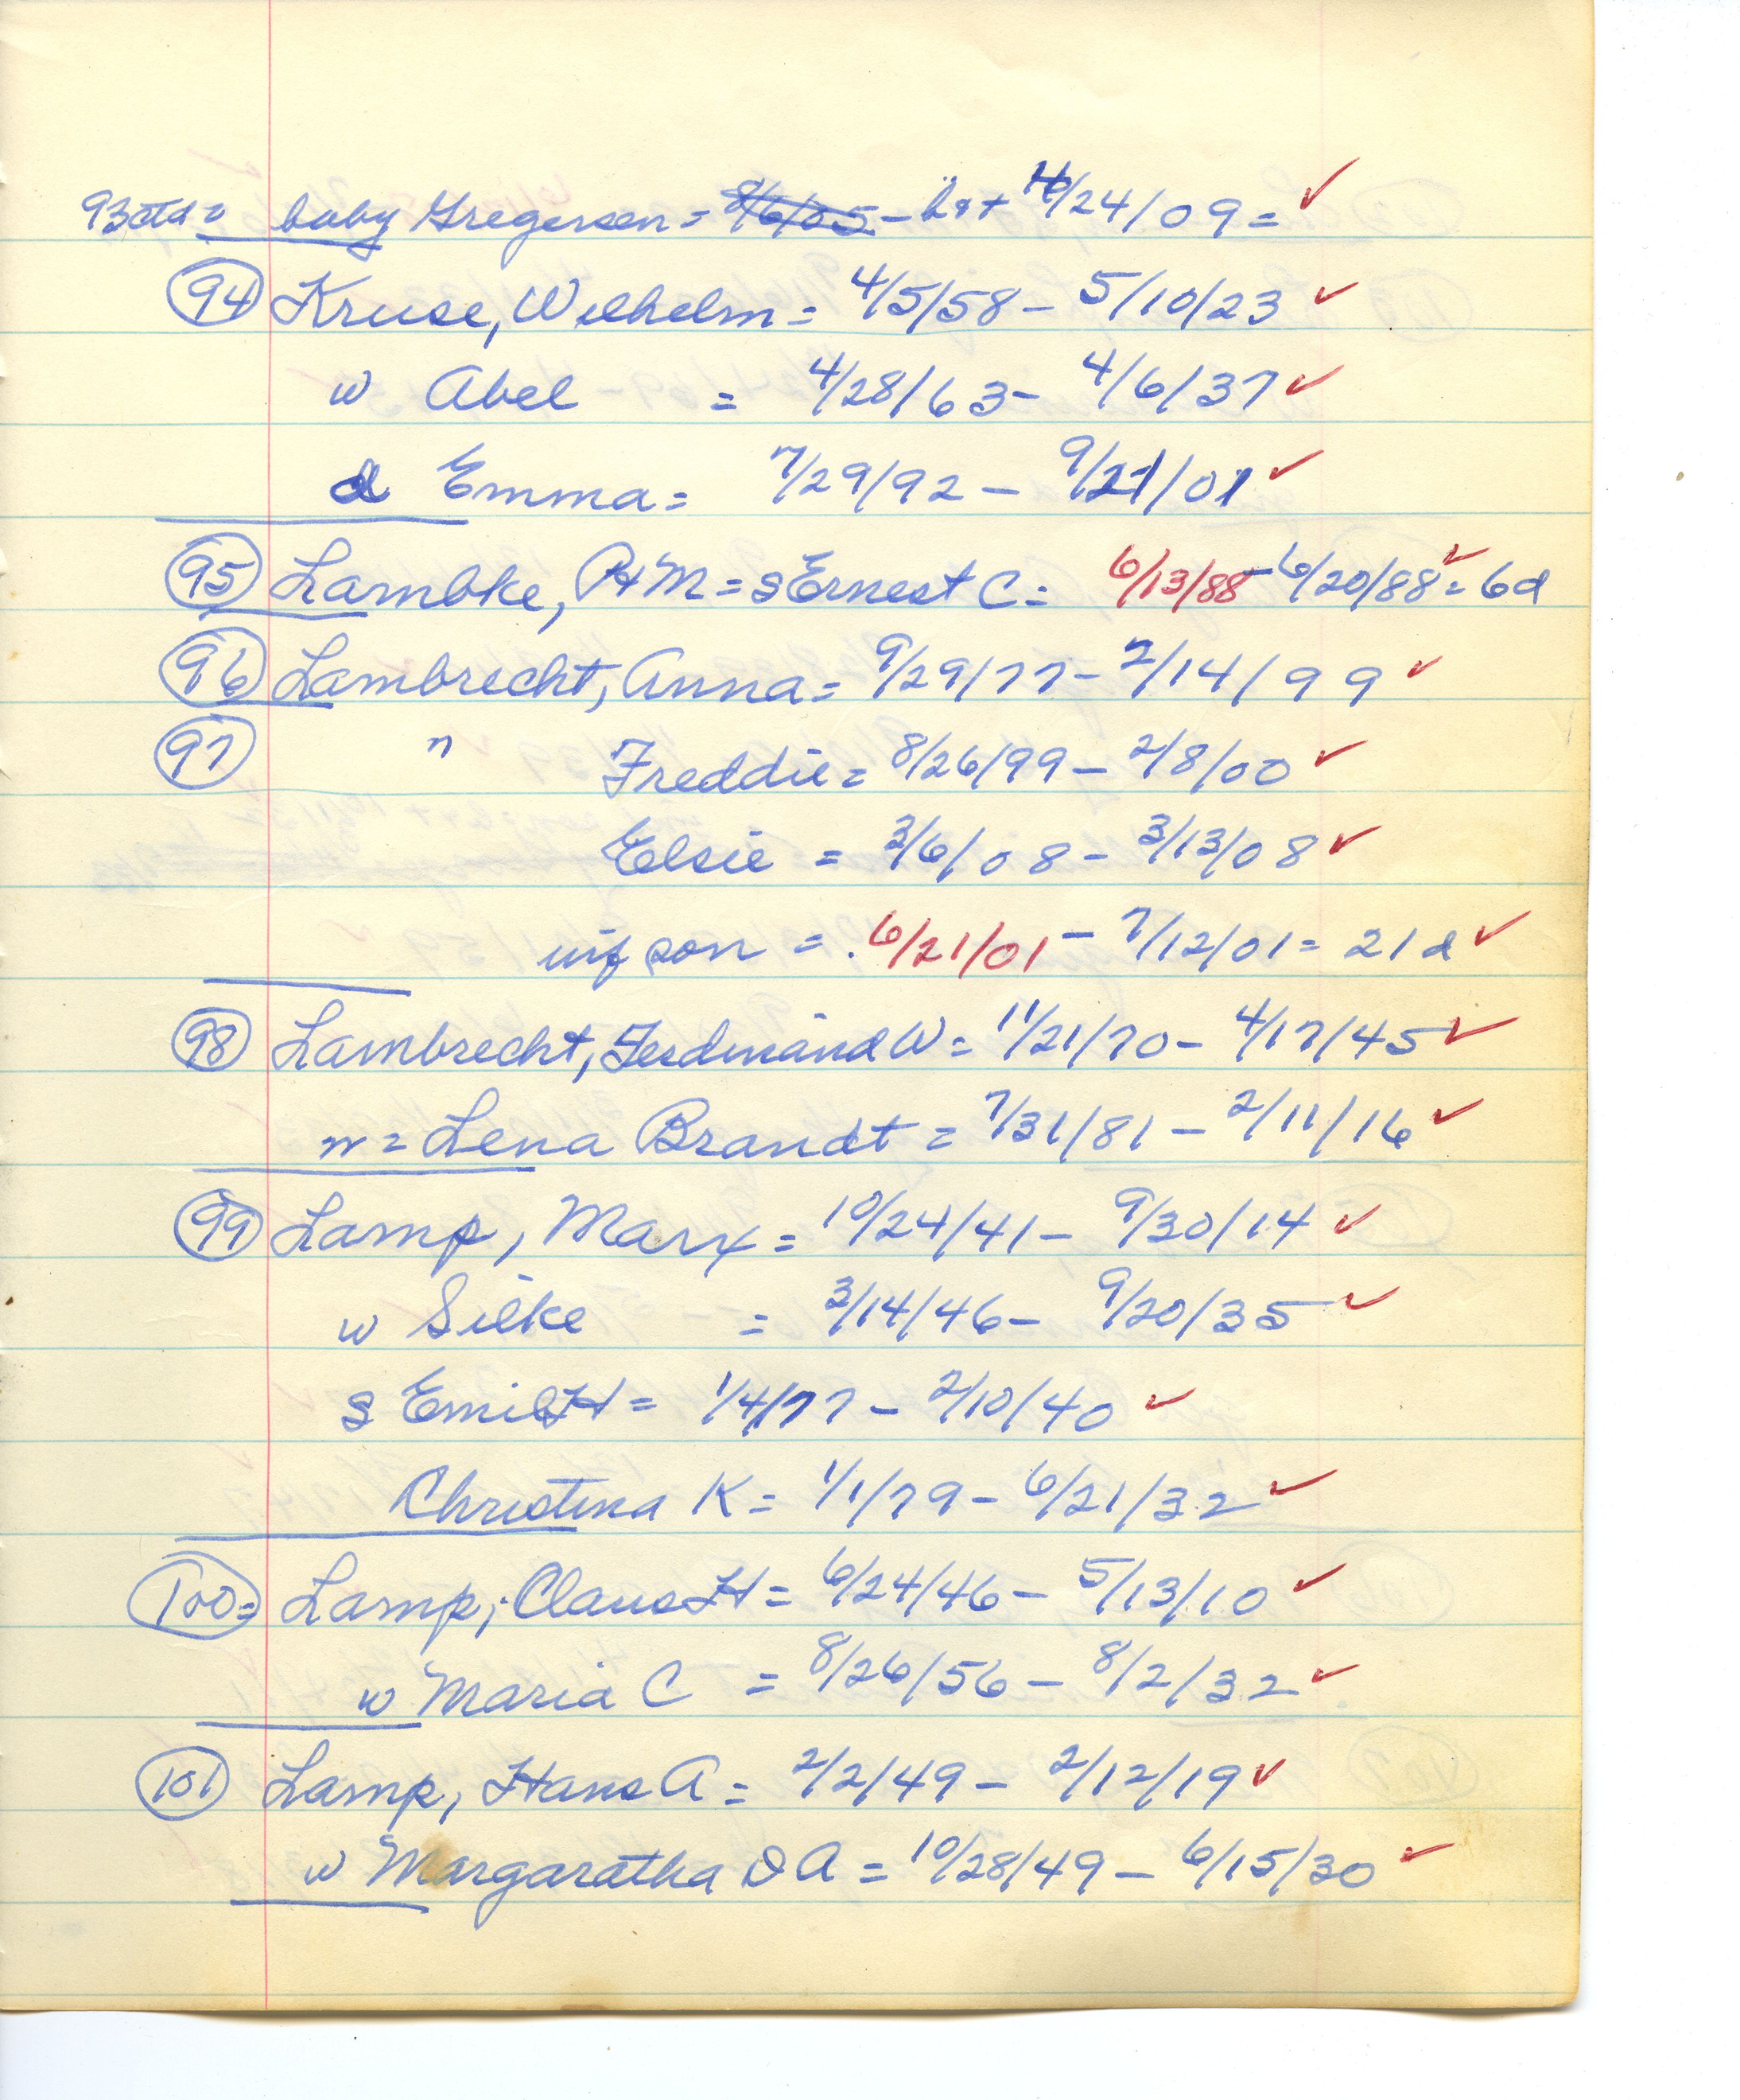 93 ctd = baby Gregersen = 8/6/05 - b+t 10/24/09 = ✓
94 Kruse, Wilhelm = 4/5/58 - 5/10/23 ✓
w Abel = 4/28/63 - 4/6/37 ✓
d Emma = 7/29/92 - 9/21/01 ✓
95 Lambke, P+M = s Ernest C = 6/13/88 - 6/20/88 ✓ = 6d
96 Lambrecht, Anna = 9/29/77 - 2/14/99 ✓
97 " Freddie = 8/26/99 - 2/8/00 ✓
Elsie = 3/6/08 - 3/13/08 ✓
inf son = 6/21/01 - 7/12/01 = 21d ✓
98 Lambrecht, Ferdinand W = 11/21/70 - 4/17/45 ✓
m = Lena Brandt = 7/31/81 - 2/11/16 ✓
99 Lamp, Marx = 10/24/41 - 9/30/14 ✓
w Silke = 3/14/46 - 9/20/35 ✓
s Emil H = 1/4/77 - 2/10/40 ✓
Christina K = 1/1/79 - 6/21/32 ✓
100 = Lamp, Claus H = 6/24/46 - 5/13/10 ✓
w Maria C = 8/26/56 - 8/2/32 ✓
101 Lamp, Hans A = 2/2/49 - 2/12/19 ✓
w Margaratha D A = 10/28/49 - 6/15/30 ✓